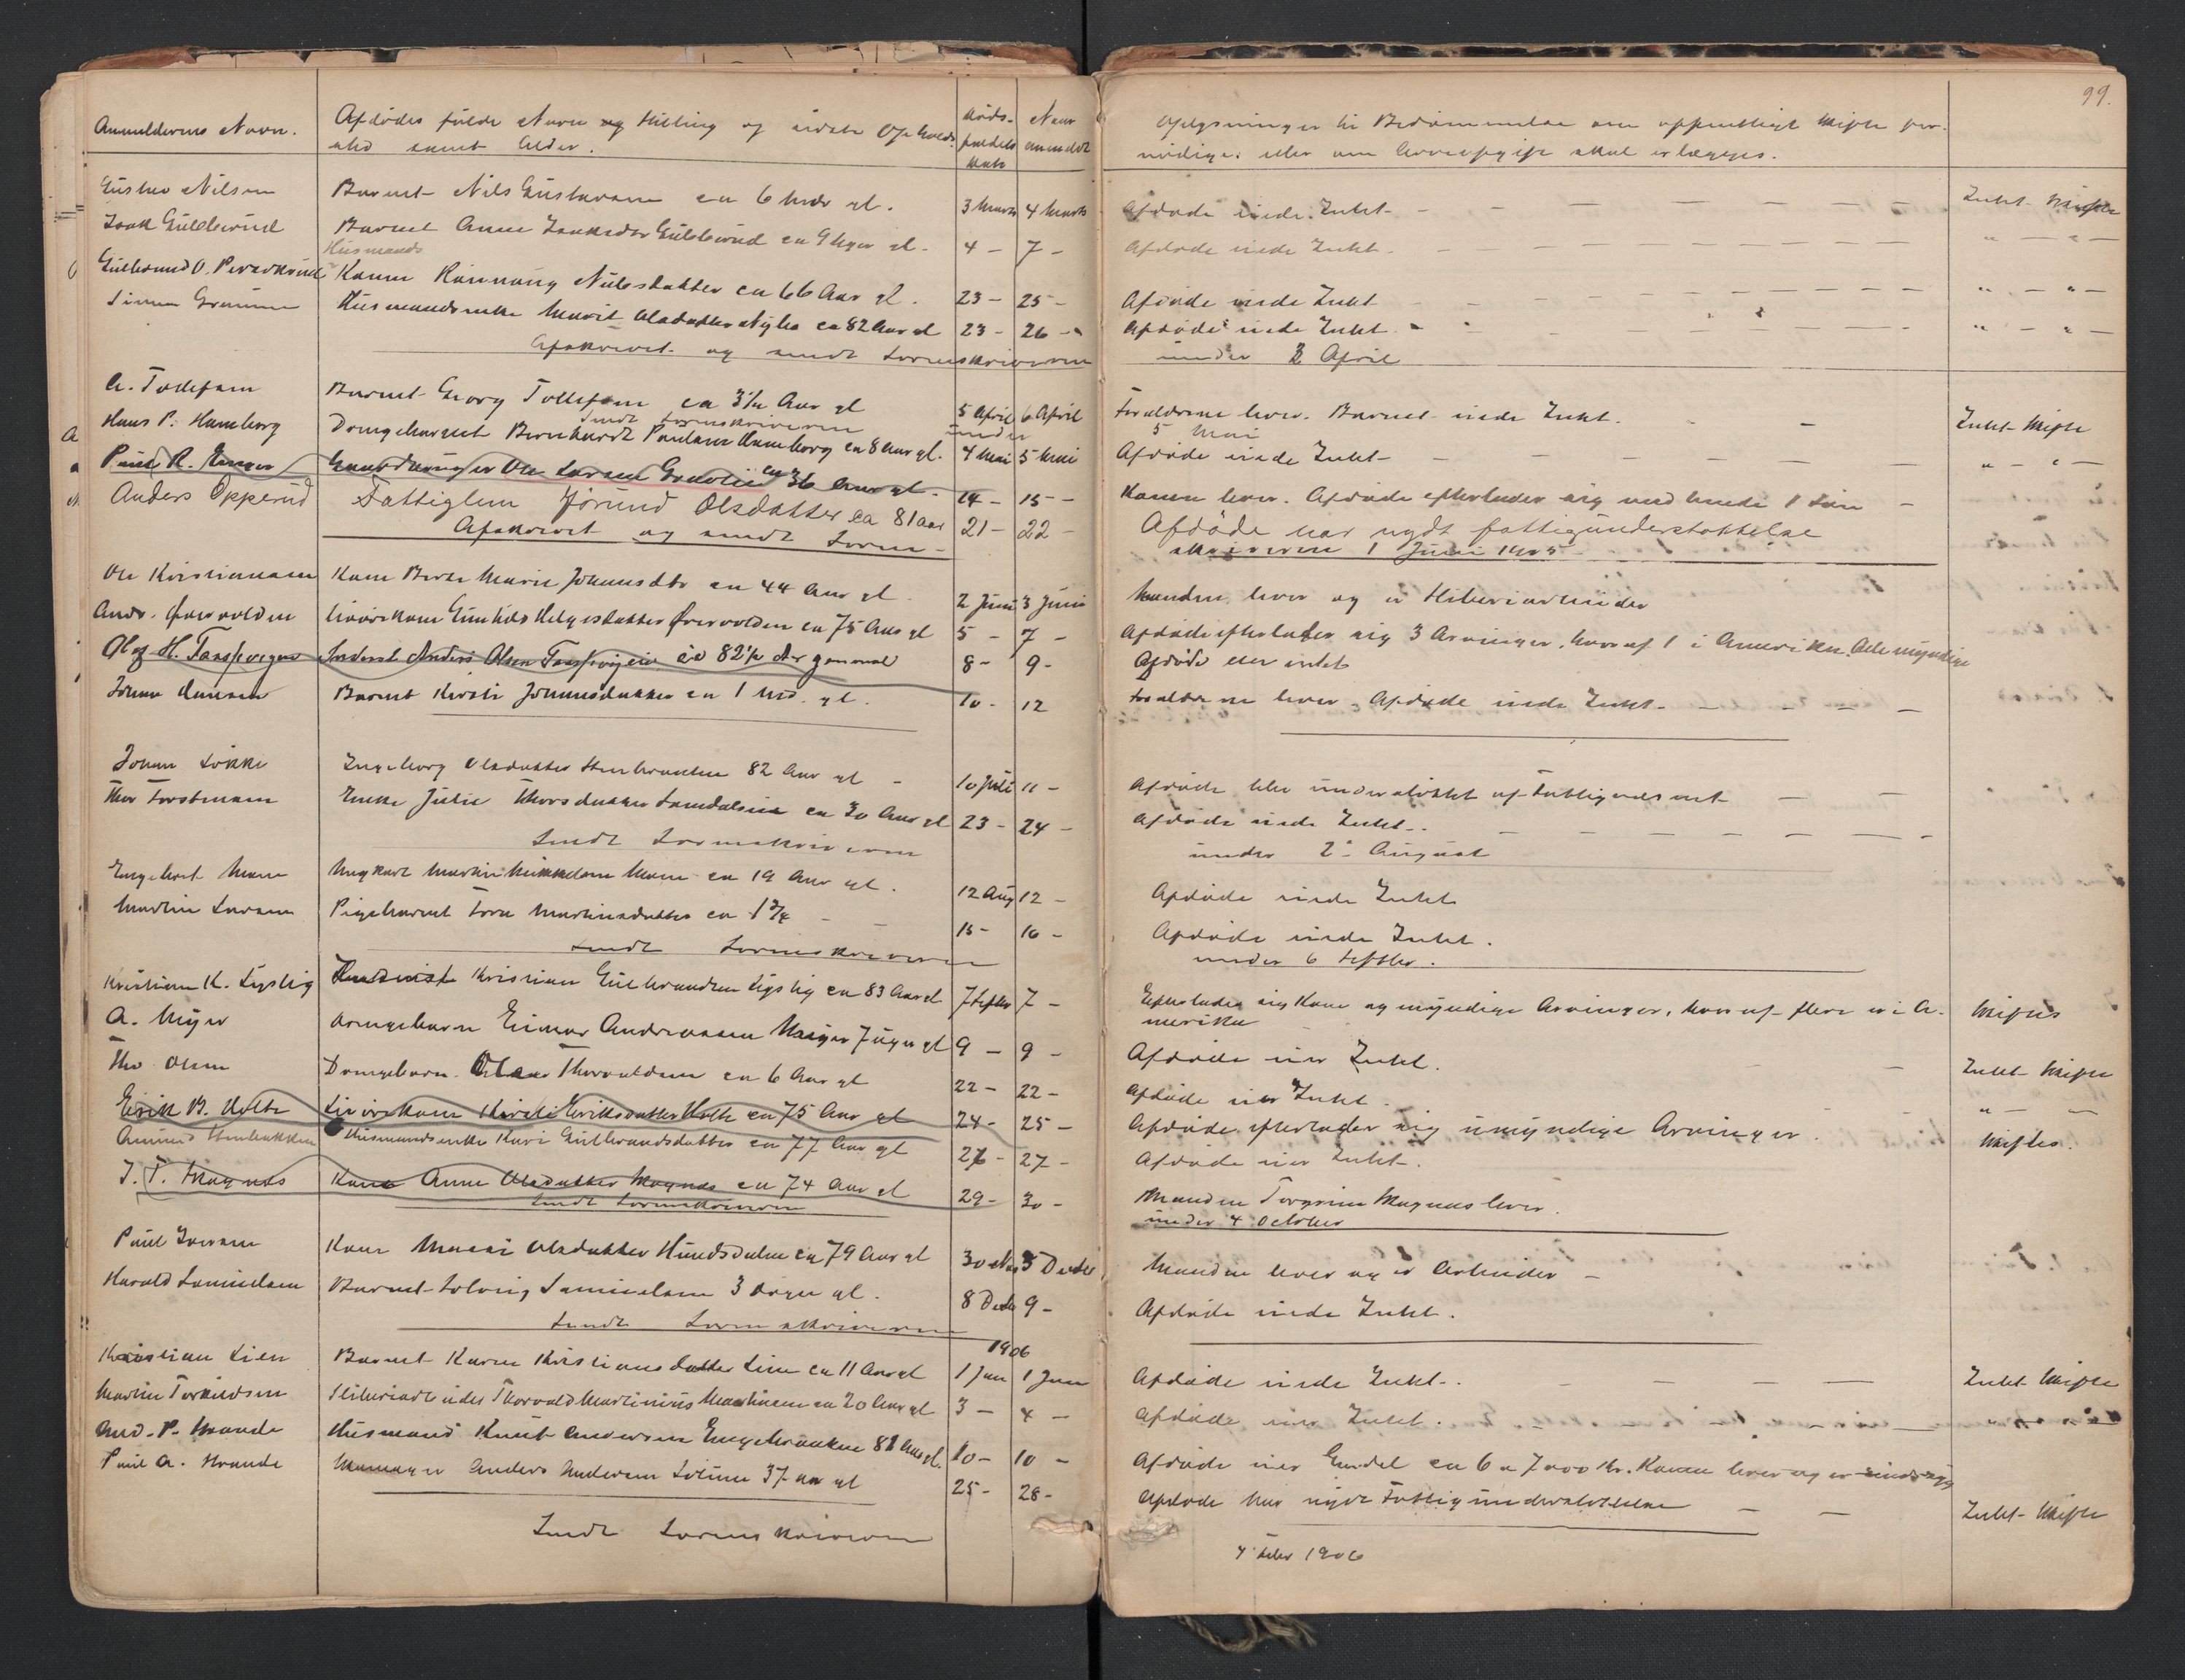 99.
Anmelderens Navn. Afdødes fulde Navn og Stilling og sidste Opholds- Døds- Naar Oplysninger til Bedømmelse om offentligt Skifte for-
sted samt Alder. faldets anmeldt nødiges eller om Arveafgift skal erlægges.
Dato
Gustav Nilsen Barnet Nils Gustavsen ca 6 mdr gl. 3 Marts 4 Marts Afdøde eiede Intet - Intet Skifte
Isak Gulbbrud Barnet Anne Isaksdtr Gulbbrud ca 9 uger gl. 4 - 7 - Afdøde eiede Intet - " - " -
Husmands
Gulbrand O. Kone Rønnaug Nilsdatter ca 66 Aar gl. 23 - 25 - Afdøde eiede Intet " - " -
Simen Husmandsenke Marit Olsdatter ca 82 Aar gl 23 - 26 - Afdøde eiede Intet " - " -
Afskrevet og sendt Sorenskriveren under 2 April
A. Tollefsen Barnet Georg Tollefsen ca 3½ Aar gl 5 April 6 April Forældrene lever. Barnet eiede Intet. Intet Skifte
sendt Sorenskriveren under 5 Mai
Hans P. Hamborg Drengebarnet Bernhardt Paulsen Hamborg ca 8 Aar gl. 4 Mai 5 Mai Afdøde eiede Intet - " - " -
Paul R. Enger Gaardbruger Ole Larsen Gravlie ca 36 Aar gl. 14 - 15 - Konen lever. Afdøde efterlader sig med hende 1 Søn -
Anders Opperud Fattiglem Jørund Olsdatter ca 81 aar 21 - 22 - Afdöde har nydt fattigunderstøttelse
Afskrevet og sendt Soren- skriveren 1 Juni 1905
Ole Kristiansen Kone Berte Marie Johannesdtr ca 44 Aar gl 2 Juni 3 Juni Manden lever og er Sliberiarbeider
Andr. Øvervolden Livørskone Gunhild Helgesdatter Øvervolden ca 75 Aar gl 5 - 7 - Afdøde efterlader sig 3 Arvinger, hvoraf 1 i Amerika. Alle myndige
Ole H. Inderst Anders Olsen ca 82½ Aar gammel 8 - 9 - Afdøde eier intet
Johan Hansen Barnet Kirsti Johannesdatter ca 1 Md. gl. 10 - 12 Forældrene lever. Afdøde eiede Intet -
Johan Løkke Ingeborg Olsdatter Stenbraaten 82 Aar gl - 10 Juli 11 - Afdøde blev understøttet af Fattigvæsenet
Thor Torstensen Enke Julie Thorsdatter ca 30 Aar gl 23 - 24 - Afdøde eiede Intet.
Sendt Sorenskriveren under 2 August
Engebret Moen Ungkarl Martin Moen ca 19 Aar gl. 12 Aug 12 - Afdøde eiede Intet
Martin Larsen Pigebarnet Tora Martinsdatter ca 1¾ - 15 - 16 - Afdøde eiede Intet.
Sendt Sorenskriveren under 6 Septbr.
Kristian K. Lyslig Inderst Kristian Gulbrandsen Lyslig ca 83 Aar gl 7 Septbr 7 - Efterlader sig Kone og myndige Arvinger, hvoraf flere er i A- Skiftes
merika
A. Meyer Drengebarn Einar Andreassen Meyer 7 uger gl 9 - 9 - Afdøde eier Intet. Intet Skifte
Tho Olsen Drengebarn Olaf Thorvaldsen ca 6 Aar gl 22 - 22 - Afdøde eier Intet. " - -
Erik B. Holte Livørskone Kirsti Eriksdatter Holte ca 75 Aar gl 24 - 25 - Afdøde efterlader sig umyndige Arvinger. Skiftes.
Amund Stenbakken Husmandsenke Kari Gulbrandsdatter ca 77 Aar gl 26 - 27 - Afdøde eier Intet.
T. T. Magnus Kone Anne Olsdatter Magnus ca 74 Aar gl 29 - 30 - Manden Torgrim Magnus lever.
Sendt Sorenskriveren under 4 October
Paul Iversen Kone Mari Olsdatter Hundsdalen ca 79 Aar gl 30 Nov 5 Decbr Manden lever og er Arbeider -
Harald Samuelsen Barnet Solveig Samuelsen 3 døgn gl. 8 Decb 9 - Afdøde eiede Intet.
Sendt Sorenskriveren
1906
Kristian Lien Barnet Karen Kristiansdatter Lien ca 11 Aar gl 1 Jan 1 Jan Afdøde eiede Intet. Intet Skifte
Martin Torkildsen Sliberiarbeider Thorvald Martinius Martinsen ca 20 Aar gl 3 - 4 - Afdøde eier Intet. " - " -
And. P. Strande Husmand Knut Andersen Engebraaten 81 Aar gl. 10 - 10 - Afdøde eier Eiendel ca 6 a 7000 Kr. Konen lever og er sindssyg
Paul A. Strande Anders Andersen 37 aar gl 25 - 28 - Afdøde har nydt Fattigunderstøttelse - Intet Skifte
Sendt Sorenskriveren 4 Febr 1906